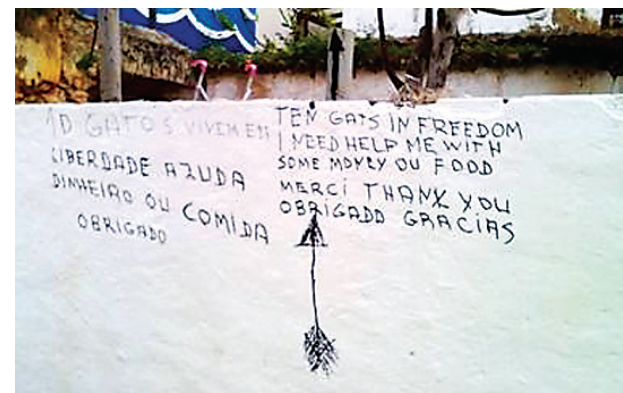 10 GATOS VIVEM EM
LIBERDADE AZUDA
DINHEIRO OU COMIDA
OBRIGADO
TEN GATS IN FREEDOM
I NEED HELP ME WITH
SOME MONEY OU FOOD
MERCI THANK YOU
OBRIGADO GRACIAS